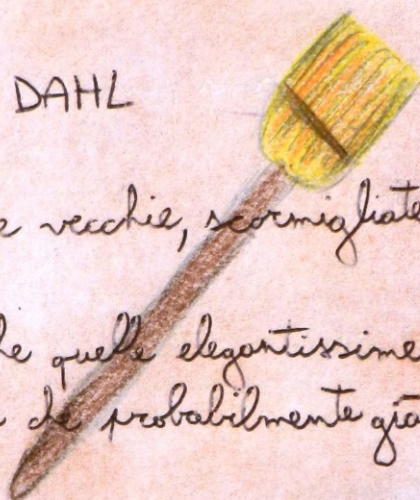 DAHL
e vecchie, scormigliate
he quelle elegantissime
che probabilmente già